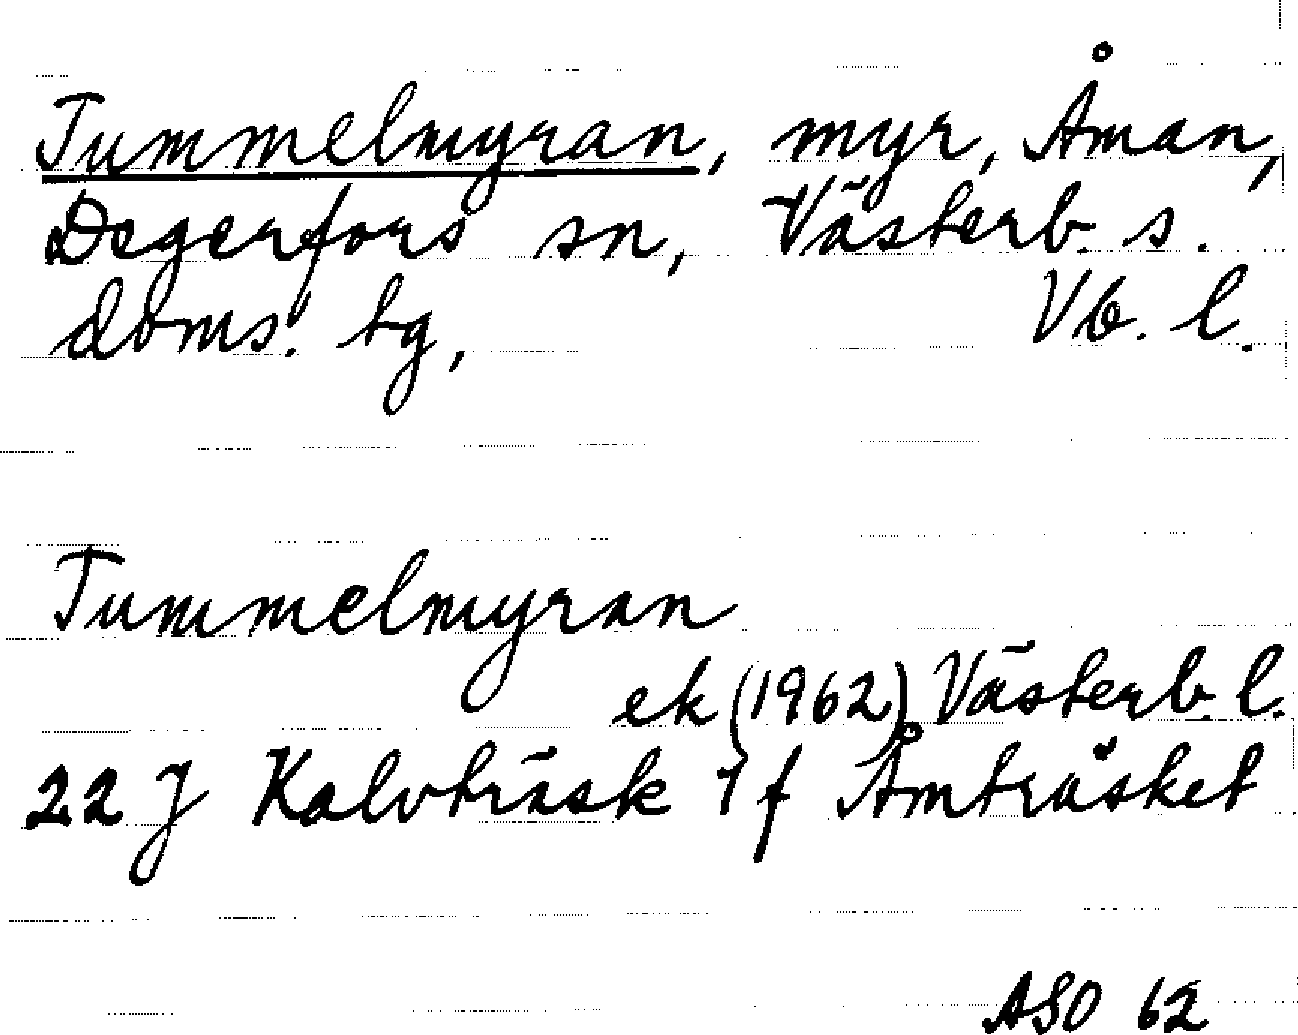 Tummelmyran, myr, Åman,
Degerfors sn, Västerb. s.
doms. tg, Vb. l.
Tummelmyran
ek (1962) Västerb. l.
22 J Kalvträsk 7 f Åmträsket
ASO 62